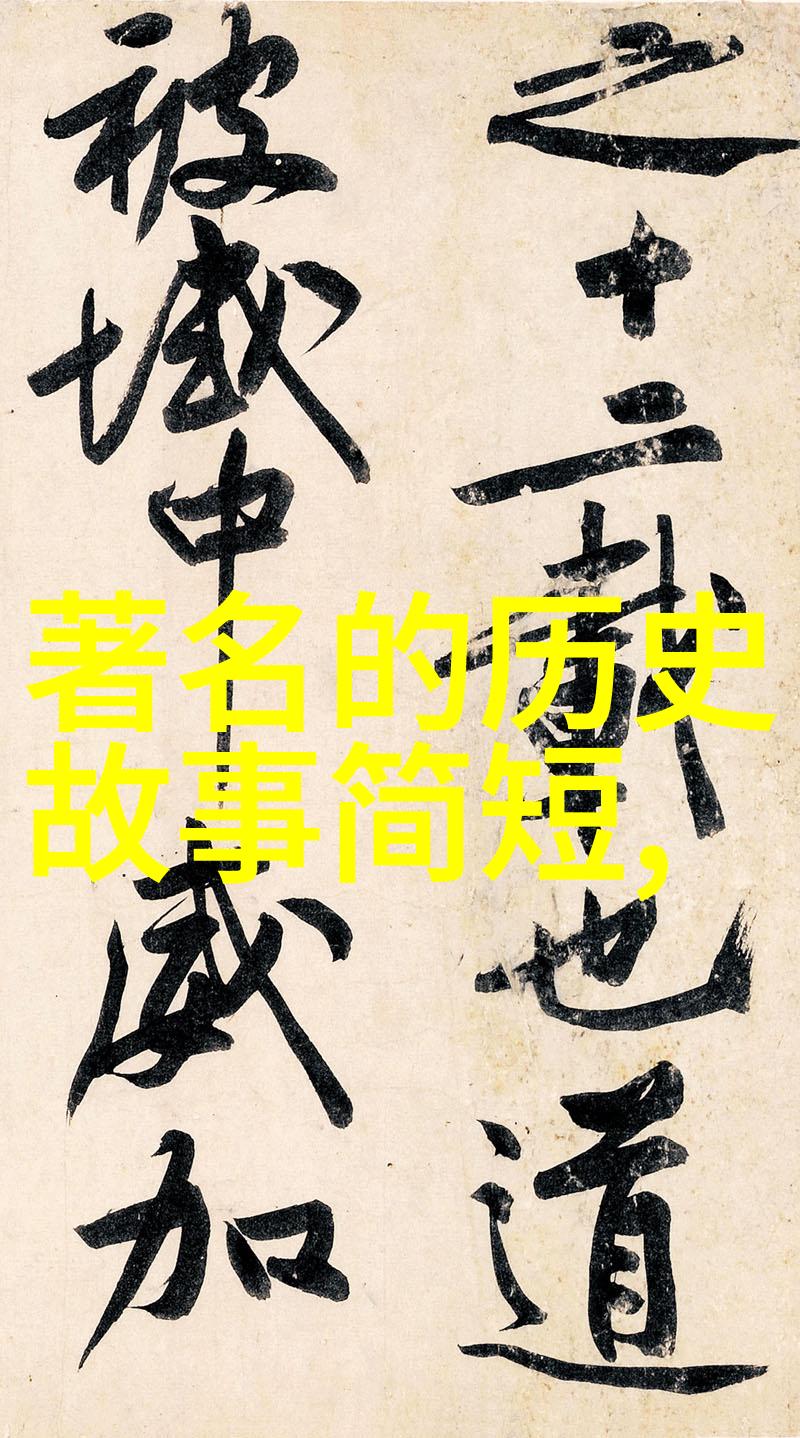 之十二載也道
被域中威加
著名的历史
故事简短,